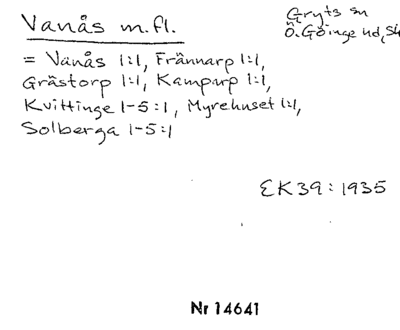 Vanås m.fl.
Gryts sn
Ö. Göinge hd, Sk
= Vanås 1:1, Frännarp 1:1,
Grästorp 1:1, Kamparp 1:1,
Kvittinge 1-5:1, Myrehuset 1:1,
Solberga 1-5:1
EK39:1935
Nr 14641